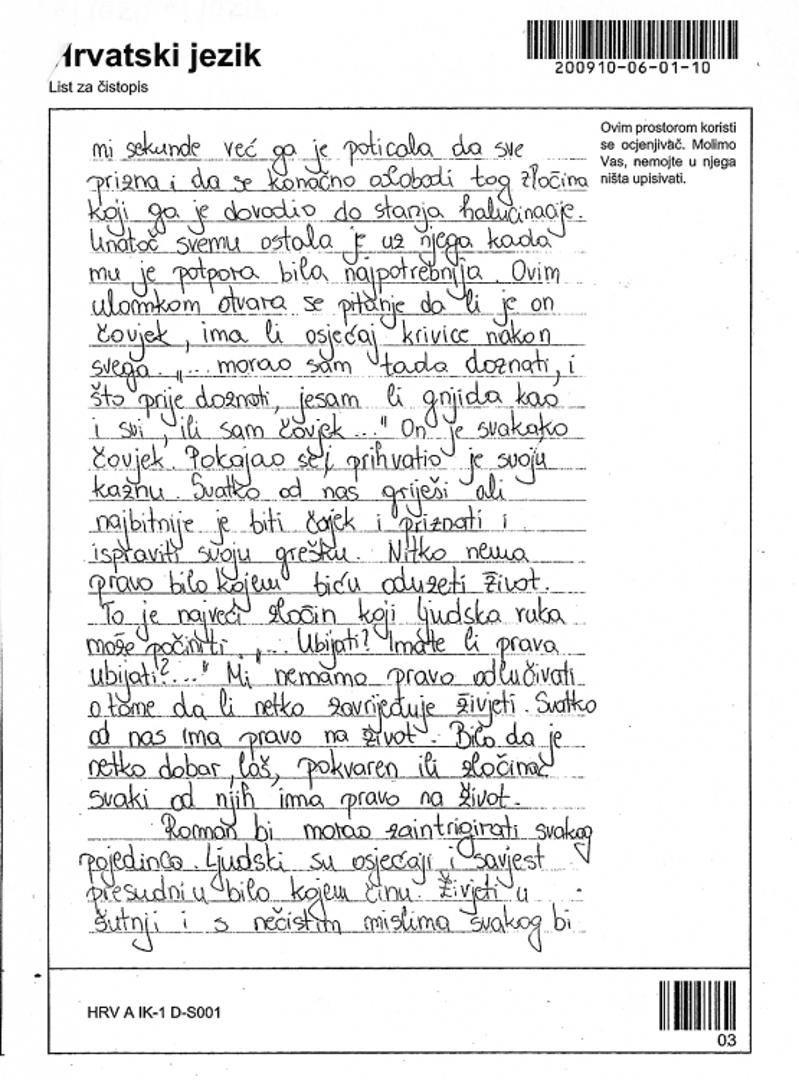 Hrvatski jezik
List za čistopis
200910-06-01-10
Ovim prostorom koristi
se ocjenjivač. Molimo
Vas, nemojte u njega
ništa upisivati.
mi sekunde već ga je poticala da sve
prizna i da se konačno oslobodi tog zločina
koji ga je dovodio do stanja halucinacije.
Unatoč svemu ostala je uz njega kada
mu je potpora bila najpotrebnija. Ovim
ulomkom otvara se pitanje da li je on
čovjek, ima li osjećaj krivice nakon
svega. „... morao sam tada doznati, i
što prije doznati, jesam li gnjida kao
i svi, ili sam čovjek ..." On je svakako
čovjek. Pokajao se i prihvatio je svoju
kaznu. Svatko od nas griješi ali
najbitnije je biti čojek i priznati i
ispraviti svoju grešku. Nitko nema
pravo bilo kojem biću oduzeti život.
To je najveći zločin koji ljudska ruka
može počiniti. „... Ubijati? Imate li prava
ubijati?..." Mi nemamo pravo odlučivati
o tome da li netko zavrijeđuje živjeti. Svatko
od nas ima pravo na život. Bilo da je
netko dobar, loš, pokvaren ili zločinac
svaki od njih ima pravo na život.
Roman bi morao zaintrigirati svakog
pojedinca. Ljudski su osjećaji i savjest
presudni u bilo kojem činu. Živjeti u
šutnji i s nečistim mislima svakog bi
HRV A IK-1 D-S001
03